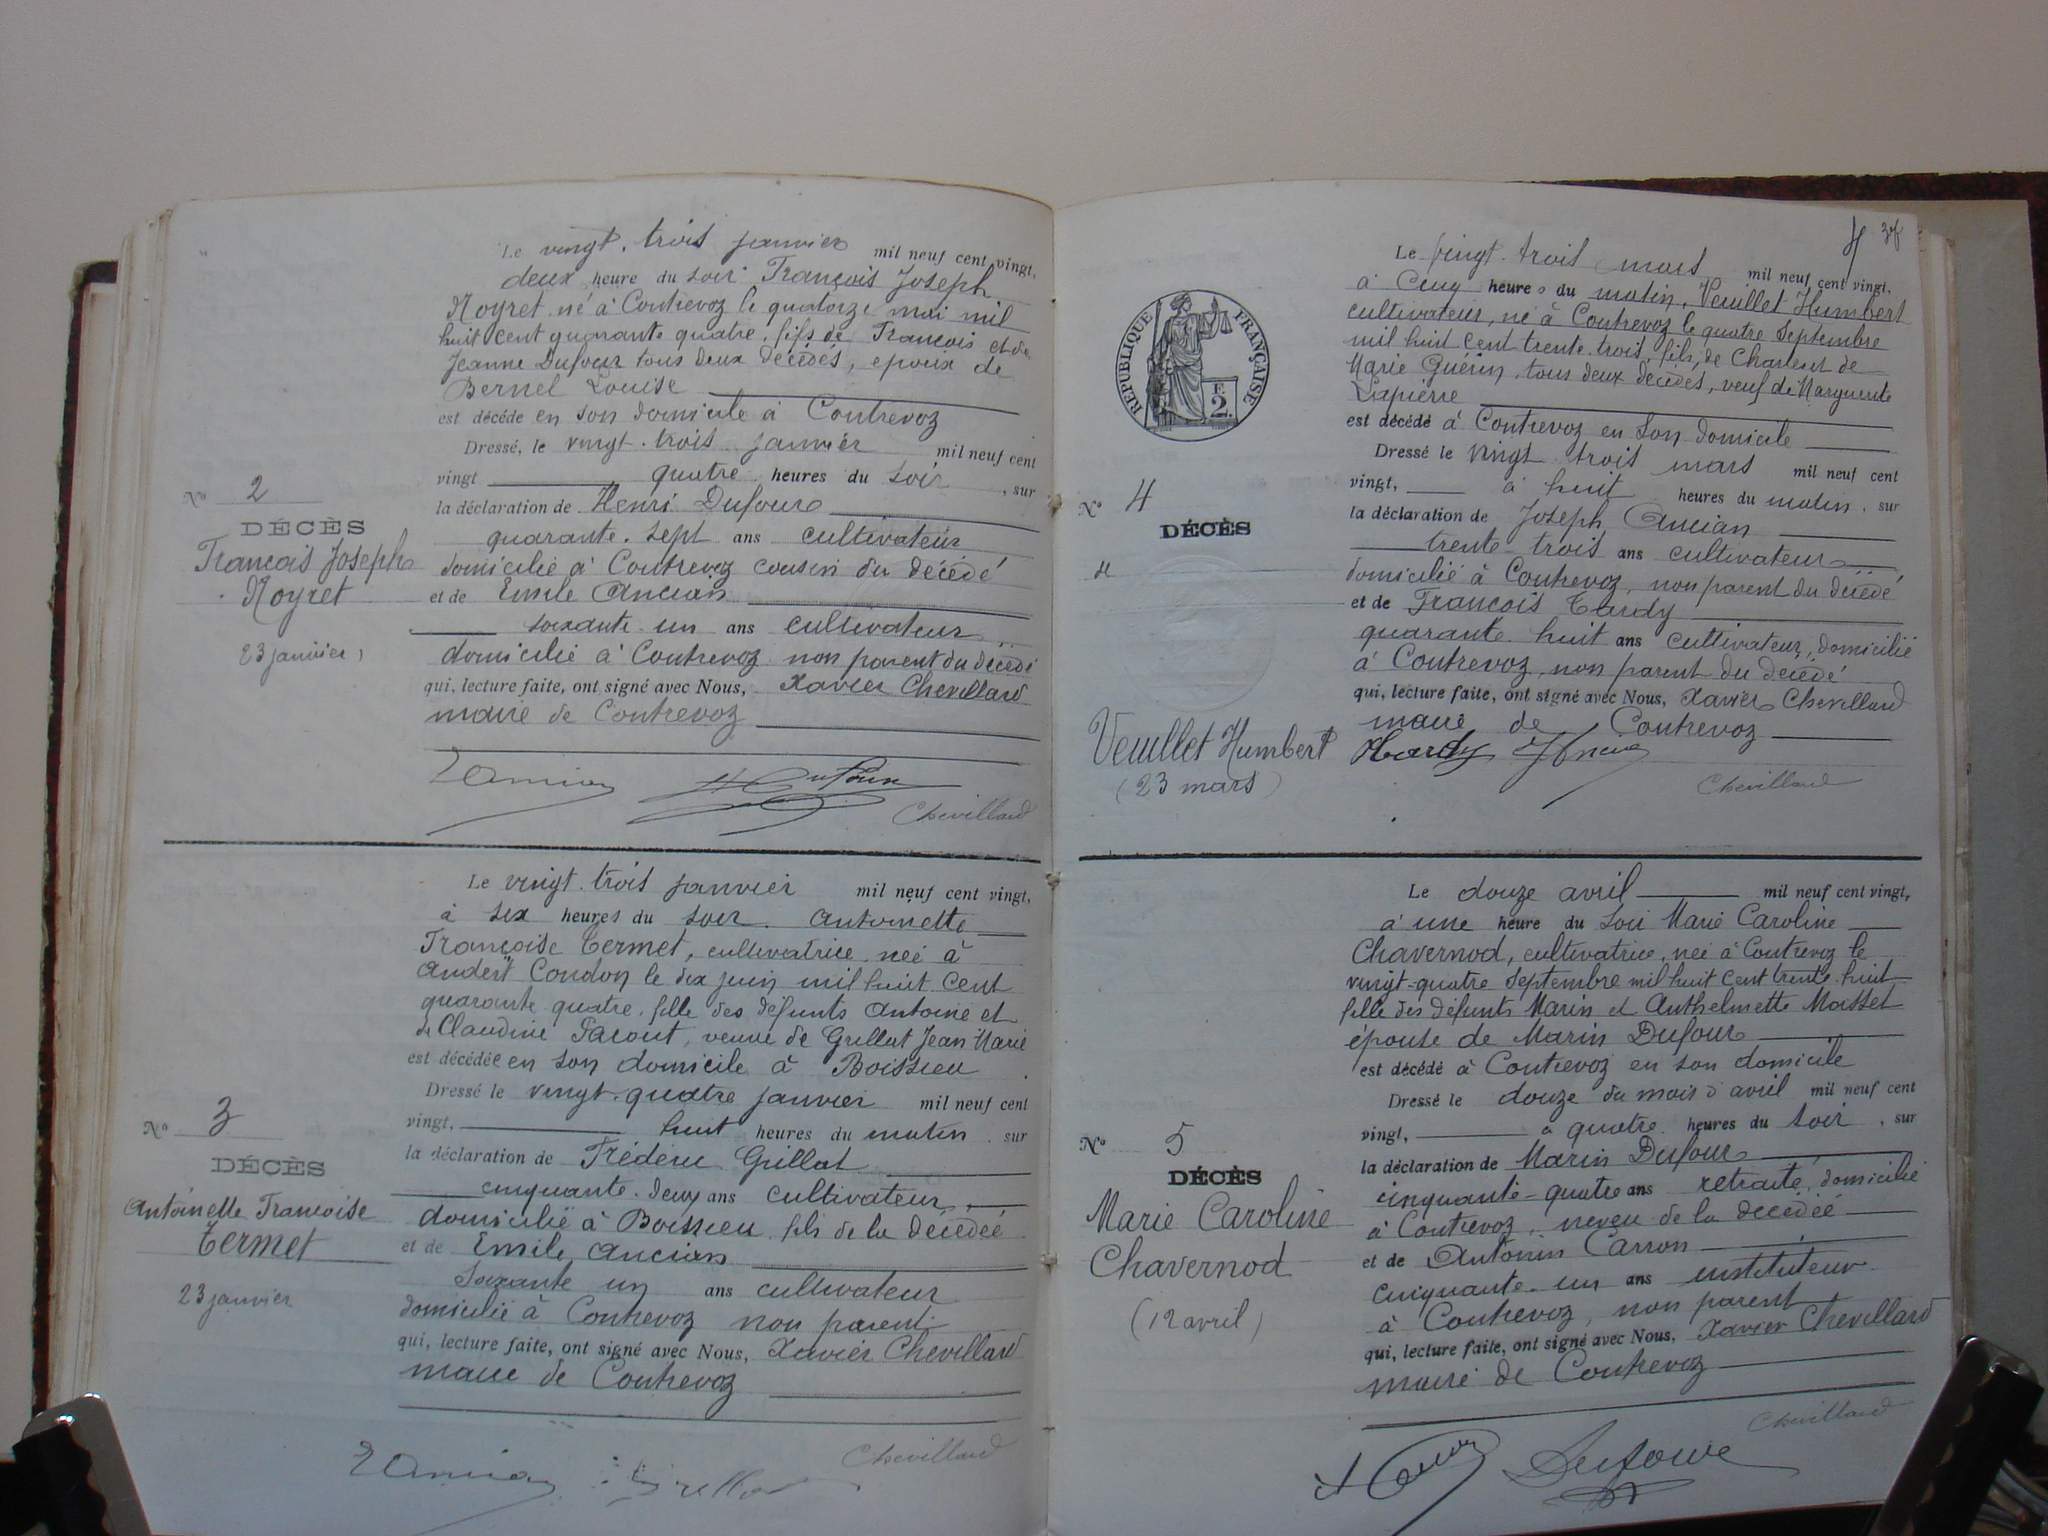 Le vingt-trois janvier mil neuf cent vingt,
deux heure du soir François Joseph
Noyret né à Contrevoz le quatorze mai mil
huit cent quarante quatre, fils de François et de
Jeanne Dufour tous deux décédés, époux de
Bernel Louise
est décédé en son domicile à Contrevoz
Dressé, le vingt-trois janvier mil neuf cent
vingt quatre heures du soir, sur
la déclaration de Henri Dufour
quarante-sept ans cultivateur
domicilié à Contrevoz cousin du décédé
et de Emile Ancian
soixante-un ans cultivateur
domicilié à Contrevoz non parent du décédé
qui, lecture faite, ont signé avec Nous, Xavier Chevillard
maire de Contrevoz
N° 2
DÉCÈS
François Joseph
Noyret
23 janvier
E Ancian H Dufour
Chevillard
Le vingt-trois janvier mil neuf cent vingt,
à six heures du soir Antoinette
Françoise Termet, cultivatrice née à
Andert Condon le dix juin mil huit cent
quarante quatre, fille des défunts Antoine et
de Claudine Pacout, veuve de Grillat Jean Marie
est décédée en son domicile à Boissieu
Dressé le vingt-quatre janvier mil neuf cent
vingt, huit heures du matin, sur
la déclaration de Fréderic Grillat
cinquante-deux ans cultivateur
domicilié à Boissieu fils de la décédée
et de Emile Ancian
soixante un ans cultivateur
domicilié à Contrevoz non parent
qui, lecture faite, ont signé avec Nous, Xavier Chevillard
maire de Contrevoz
N° 3
DÉCÈS
Antoinette Françoise
Termet
23 janvier
E Ancian Grillat
Chevillard
4
Le vingt-trois mars mil neuf cent vingt,
à cinq heures du matin, Veuillet Humbert
cultivateur, né à Contrevoz le quatre Septembre
mil huit cent trente-trois, fils, de Charles et de
Marie Guérin, tous deux décédés, veuf de Marguerite
Lapierre
est décédé à Contrevoz en son domicile
Dressé le vingt-trois mars mil neuf cent
vingt, à huit heures du matin, sur
la déclaration de Joseph Ancian
trente-trois ans cultivateur
domicilié à Contrevoz, non parent du décédé
et de François Tardy
quarante-huit ans cultivateur, domicilié
à Contrevoz, non parent du décédé
qui, lecture faite, ont signé avec Nous, Xavier Chevillard
maire de Contrevoz
RÉPUBLIQUE FRANÇAISE
E.
2.
N° 4
DÉCÈS
Veuillet Humbert
(23 mars)
Tardy J Ancian
Chevillard
Le douze avril mil neuf cent vingt,
à une heure du soir Marie Caroline
Chavernod, cultivatrice, née à Contrevoz le
vingt-quatre Septembre mil huit cent trente-huit
fille des défunts Marin et Anthelmette Masset
épouse de Marin Dufour
est décédé à Contrevoz en son domicile
Dressé le douze du mois d'avril mil neuf cent
vingt, à quatre heures du soir, sur
la déclaration de Marin Dufour
cinquante-quatre ans retraité, domicilié
à Contrevoz, neveu de la décédée
et de Antonin Carron
cinquante-un ans instituteur
à Contrevoz, non parent
qui, lecture faite, ont signé avec Nous, Xavier Chevillard
maire de Contrevoz
N° 5
DÉCÈS
Marie Caroline
Chavernod
(12 avril)
Chevillard
A Carron Dufour